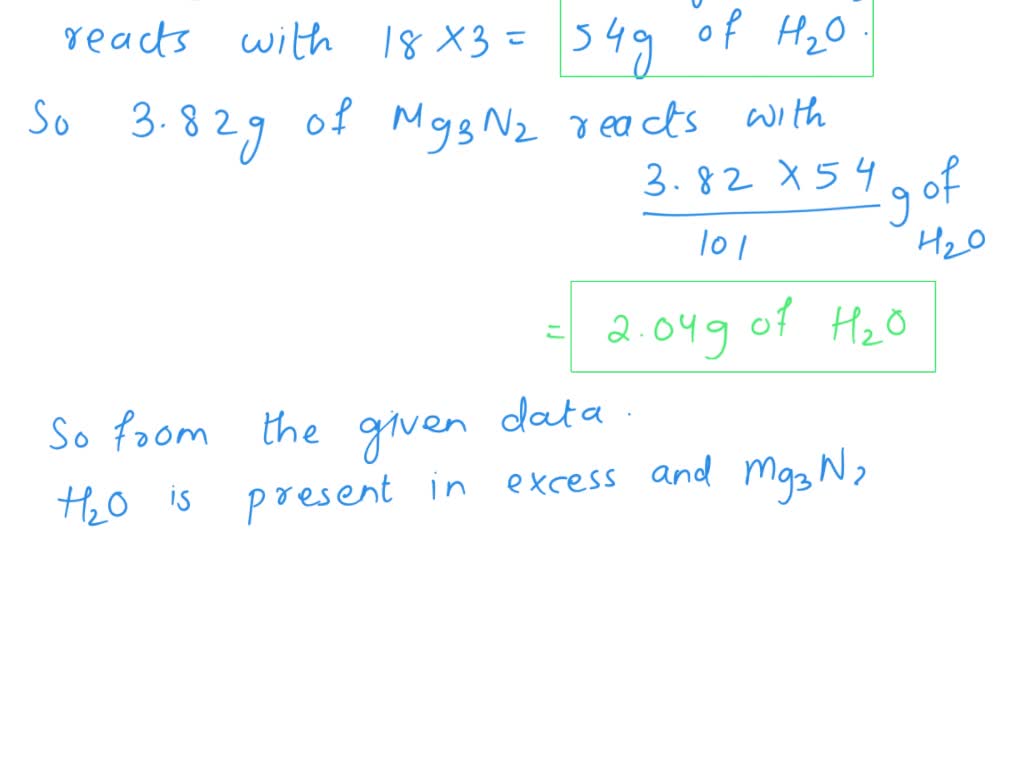 reacts with 18 x3 = 54g of H2O.
So 3.82g of Mg3N2 reacts with
3.82 x 54 g of
101 H2O
= 2.04g of H2O
So from the given data.
H2O is present in excess and Mg3N2